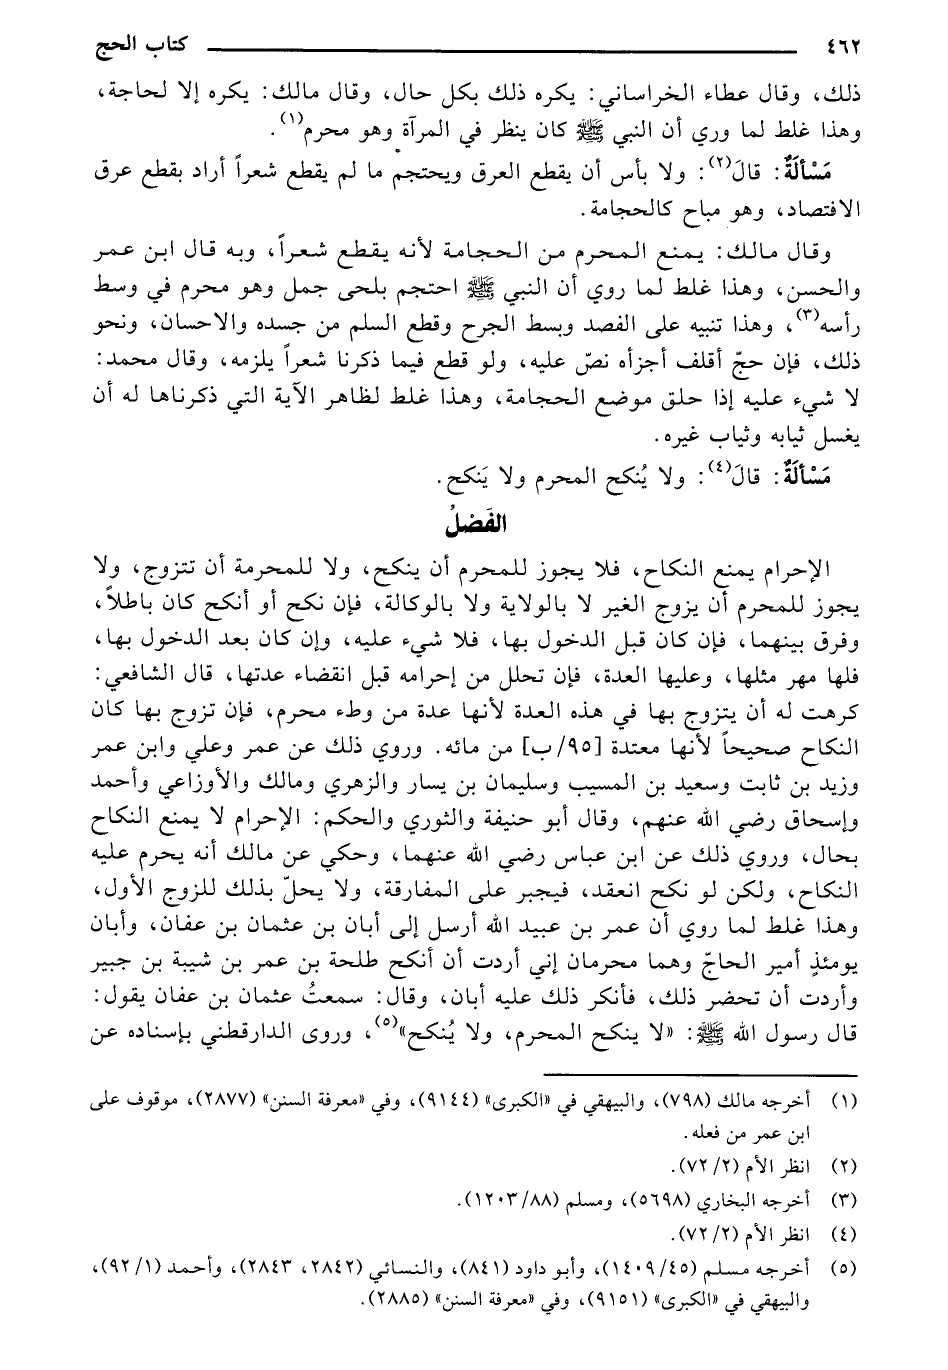 ٤٦٢ كتاب الحج
ذلك، وقال عطاء الخراساني: يكره ذلك بكل حال، وقال مالك: يكره إلا لحاجة،
وهذا غلط لما وري أن النبي ﷺ كان ينظر في المرآة وهو محرم(١).
مَسْأَلَةٌ: قالَ(٢): ولا بأس أن يقطع العرق ويحتجم ما لم يقطع شعراً أراد بقطع عرق
الافتصاد، وهو مباح كالحجامة.
وقال مالك: يمنع المحرم من الحجامة لأنه يقطع شعراً، وبه قال ابن عمر
والحسن، وهذا غلط لما روي أن النبي ﷺ احتجم بلحى جمل وهو محرم في وسط
رأسه(٣)، وهذا تنبيه على الفصد وبسط الجرح وقطع السلم من جسده والاحسان، ونحو
ذلك، فإن حجّ أقلف أجزأه نصّ عليه، ولو قطع فيما ذكرنا شعراً يلزمه، وقال محمد:
لا شيء عليه إذا حلق موضع الحجامة، وهذا غلط لظاهر الآية التي ذكرناها له أن
يغسل ثيابه وثياب غيره.
مَسْأَلَةٌ: قالَ(٤): ولا يُنكح المحرم ولا يَنكح.
الفَصْلُ
الإحرام يمنع النكاح، فلا يجوز للمحرم أن ينكح، ولا للمحرمة أن تتزوج، ولا
يجوز للمحرم أن يزوج الغير لا بالولاية ولا بالوكالة، فإن نكح أو أنكح كان باطلاً،
وفرق بينهما، فإن كان قبل الدخول بها، فلا شيء عليه، وإن كان بعد الدخول بها،
فلها مهر مثلها، وعليها العدة، فإن تحلل من إحرامه قبل انقضاء عدتها، قال الشافعي:
كرهت له أن يتزوج بها في هذه العدة لأنها عدة من وطء محرم، فإن تزوج بها كان
النكاح صحيحاً لأنها معتدة [٩٥/ب] من مائه. وروي ذلك عن عمر وعلي وابن عمر
وزيد بن ثابت وسعيد بن المسيب وسليمان بن يسار والزهري ومالك والأوزاعي وأحمد
وإسحاق رضي الله عنهم، وقال أبو حنيفة والثوري والحكم: الإحرام لا يمنع النكاح
بحال، وروي ذلك عن ابن عباس رضي الله عنهما، وحكي عن مالك أنه يحرم عليه
النكاح، ولكن لو نكح انعقد، فيجبر على المفارقة، ولا يحلّ بذلك للزوج الأول،
وهذا غلط لما روي أن عمر بن عبيد الله أرسل إلى أبان بن عثمان بن عفان، وأبان
يومئذٍ أمير الحاجّ وهما محرمان إني أردت أن أنكح طلحة بن عمر بن شيبة بن جبير
وأردت أن تحضر ذلك، فأنكر ذلك عليه أبان، وقال: سمعتُ عثمان بن عفان يقول:
قال رسول الله ﷺ: «لا ينكح المحرم، ولا يُنكح»(٥)، وروى الدارقطني بإسناده عن
(١) أخرجه مالك (٧٩٨)، والبيهقي في «الكبرى» (٩١٤٤)، وفي «معرفة السنن» (٢٨٧٧)، موقوف على
ابن عمر من فعله.
(٢) انظر الأم (٧٢/٢).
(٣) أخرجه البخاري (٥٦٩٨)، ومسلم (١٢٠٣/٨٨).
(٤) انظر الأم (٧٢/٢).
(٥) أخرجه مسلم (١٤٠٩/٤٥)، وأبو داود (٨٤١)، والنسائي (٢٨٤٢، ٢٨٤٣)، وأحمد (٩٢/١)،
والبيهقي في «الكبرى» (٩١٥١)، وفي «معرفة السنن» (٢٨٨٥).